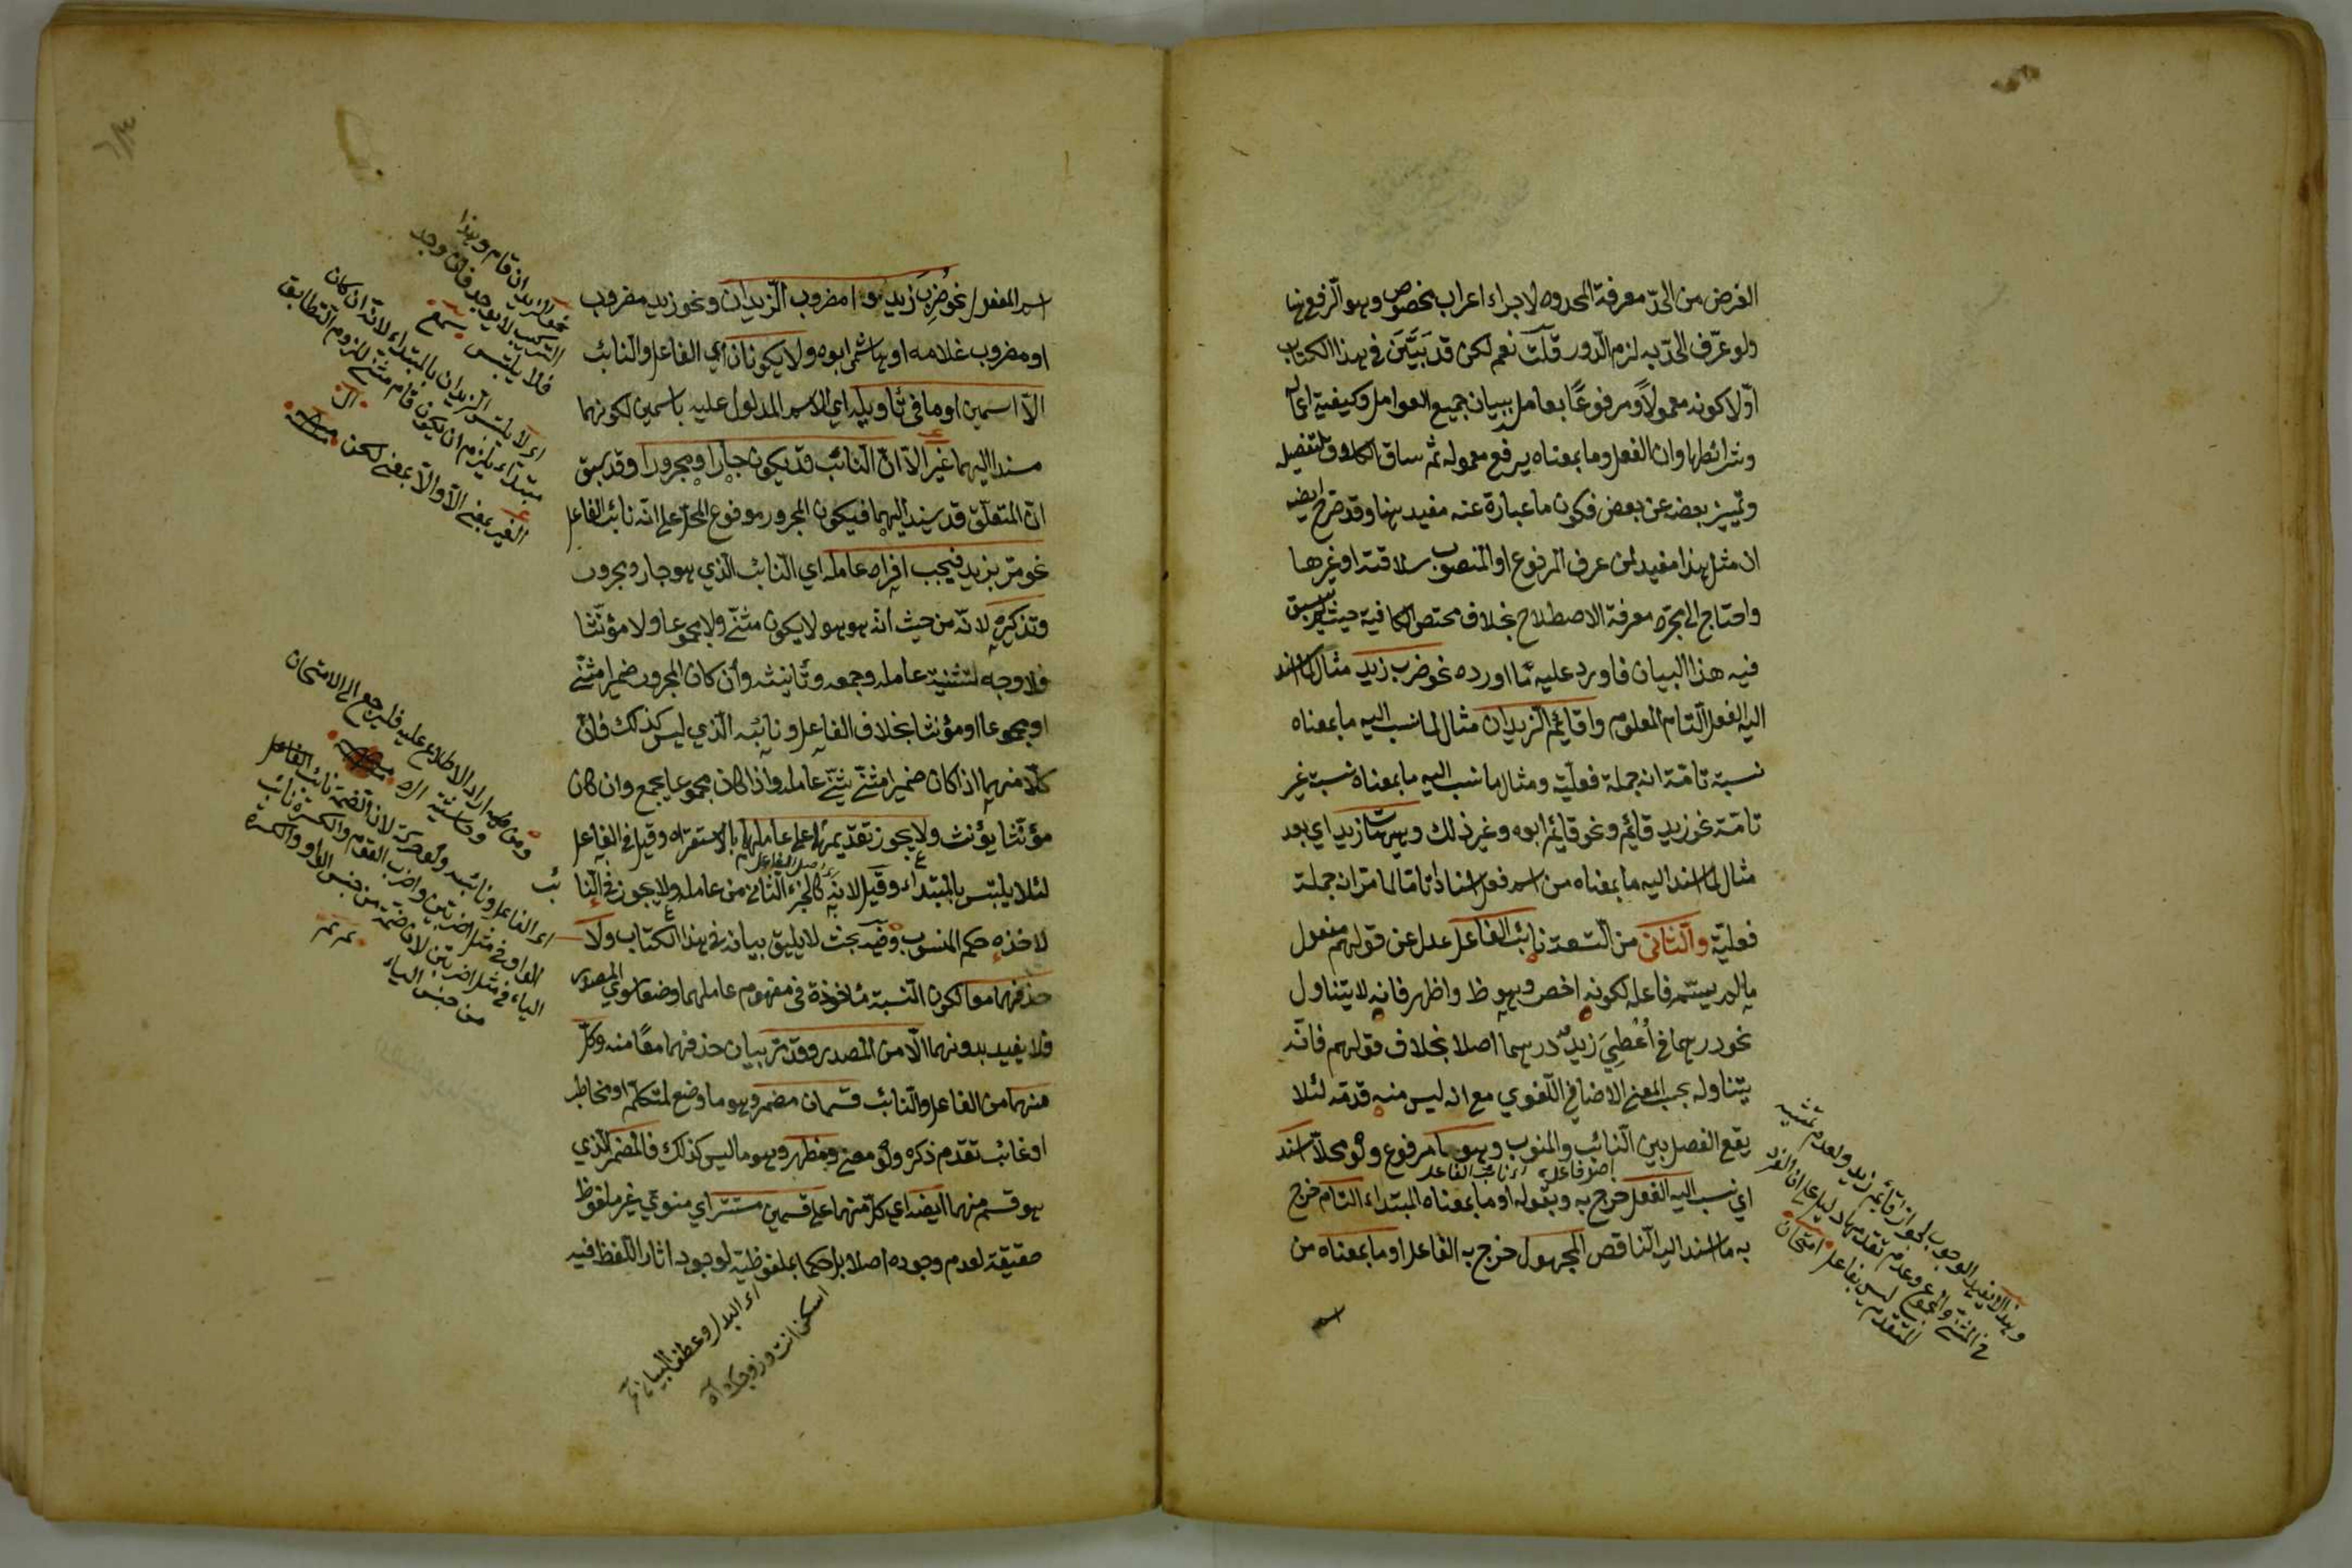 الغرض من الحدّ معرفة المحدود لاجراء اعراب مخصوص وهو الرفع هنا
ولو عرّف الحدّ به لزم الدور قلت نعم لكن قد بيّن في هذا الكتاب
اوّلا كونه معمولاً ومرفوعًا بعامل ببيان جميع العوامل وكيفية اعمالها
وشرائطها وان الفعل وما بمعناه يرفع معموله ثم ساق الكلام لتفصيل
وتمييز بعضه عن بعض فكون ما عبارة عنه مفيد هنا وقد صرح ايضا
ان مثل هذا مفيد لمن عرف المرفوع او المنصوب سلاقة او غيرها
واحتاج الى مجرد معرفة الاصطلاح بخلاف مختصر الكافية حيث لم يسبق
فيه هذا البيان فاورد عليه ما اورده نحو ضرب زيد مثال لما اسند
اليه الفعل التام المعلوم واقائم الزيدان مثال لما نسب اليه ما بمعناه
نسبة تامة انه جملة فعليّة ومثال ما نسب اليه ما بمعناه نسبة غير
تامّة نحو زيد قائم ونحو قائم ابوه وغير ذلك وهيهات زيد اي بعد
مثال لما اسند اليه ما بمعناه من اسم فعل اسنادا تاما لما مر انه جملة
فعليّة والثاني من التسعة نائب الفاعل عدل عن قولهم مفعول
ما لم يسمّ فاعله لكونه اخص وهو ظ واظهر فانه لا يتناول
نحو درهما في أُعْطِيَ زيدٌ درهما اصلا بخلاف قولهم فانّه
يتناوله بحسب المعنى الاضافي اللغوي مع انه ليس منه قدمه لئلا
يقع الفصل بين النائب والمنوب وهو ما مرفوع ولو محلاّ اسند
اي نسب اليه الفعل خرج به وبقوله او ما بمعناه المبتداء التام خرج
به ما اسند اليه الناقص المجهول خرج به الفاعل او ما بمعناه من
اسم
وهذا لا يفيد الوجوب لجواز قائم زيد ولعدم تثنيه
في المثنى والجموع وعدم تقدمها دليل على ان المفرد
المتقدم ليس بفاعل امتحان
اسم المفعول نحو ضُرِبَ زيد وا مضروب الزيدان ونحو زيد مضروب
او مضروب غلامه او هاشمى ابوه ولا يكونان اي الفاعل والنائب
الا اسمين او ما في تاويله اي الاسم المدلول عليه باسمين لكونهما
مسندا اليهما غير الا انّ النائب قد يكون جارا ومجرورا وقد سبق
انّ المتعلّق قد يسند اليهما فيكون المجرور مرفوع المحلّ على انّه نائب الفاعل
نحو مرّ بزيد فيجب افراد عامله اي النائب الذي هو جار ومجرور
وتذكيره لانّه من حيث انّه هو هو لا يكون مثنّى ولا مجموعا ولا مؤنّثا
فلا وجه لتثنية عامله وجمعه وتأنيثه وان كان المجرور ضميرا مثنّى
او مجموعا او مؤنثا بخلاف الفاعل ونائبه الذي ليس كذلك فانّ
كلّا منهما اذا كان ضميرا مثنّى يثنّى عامله واذا كان مجموعا يجمع وان كان
مؤنّثا يؤنث ولا يجوز تقديمهما على عاملهما بالاستقراء وقيل في الفاعل
لئلا يلتبس بالمبتداء وقيل لانه كالجزء الثاني من عامله ولا يجوز في النا
ئب
لاخذه حكم المنسوب وفيه بحث لا يليق بيانه في هذا الكتاب ولا
حذفهما معا لكون النسبة مأخوذة في مفهوم عاملهما وضعا سوى المصدر
فلا يفيد بدونهما الا من المصدر وقد مرّ بيان حذفهما معًا منه وكلّ
منهما من الفاعل والنائب قسمان مضمر وهو ما وضع لمتكلّم او مخاطب
او غائب تقدّم ذكره ولو معنى ومظهر وهو ما ليس كذلك فالمضمر الذي
هو قسم منهما ايضا اي كلّ منهما على قسمين مستتر اي منوي غير ملفوظ
حقيقة لعدم وجوده اصلا بل حكما بملفوظيّة لوجود اثار اللفظ فيه
نحو الزيدان قام وهذا
التركيب لا يوجد فان وجد
فلا يلتبس سمع
اى لا يلتبس الزيدان بالمبتداء لانّه ان كان
مبتداء يلزم ان يكون قام مثنى للزوم التطابق
الغير بمعنى الا والا بمعنى لكن
ومن اراد الاطلاع عليه فليرجع الى الامتحان
وحاشيته
اى الفاعل ونائبه ولو حركة لان الضمة نائب الفاعل
الواو في مثل اضربن واضرب القوم والكسرة نائب
الياء في مثل اضربن لان الضمة من جنس الواو والكسرة
من جنس الياء
اى البدل وعطف البيان
اسكن انت وزوجك